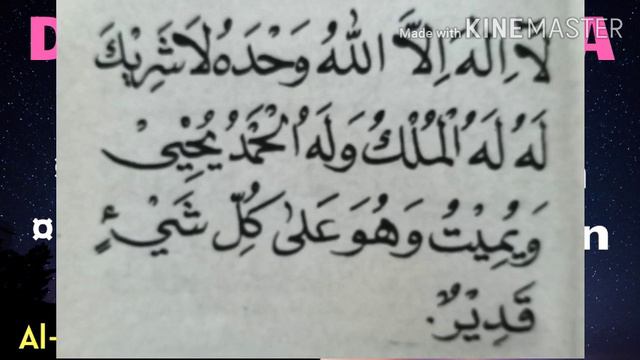 Made with KINEMASTER
D A
لَا اِلٰهَ اِلَّا اللهُ وَحْدَهُ لَا شَرِيْكَ
لَهُ لَهُ الْمُلْكُ وَلَهُ الْحَمْدُ يُحْيِيْ
وَيُمِيْتُ وَهُوَ عَلٰى كُلِّ شَيْءٍ
n
قَدِيْرٌ.
Al-